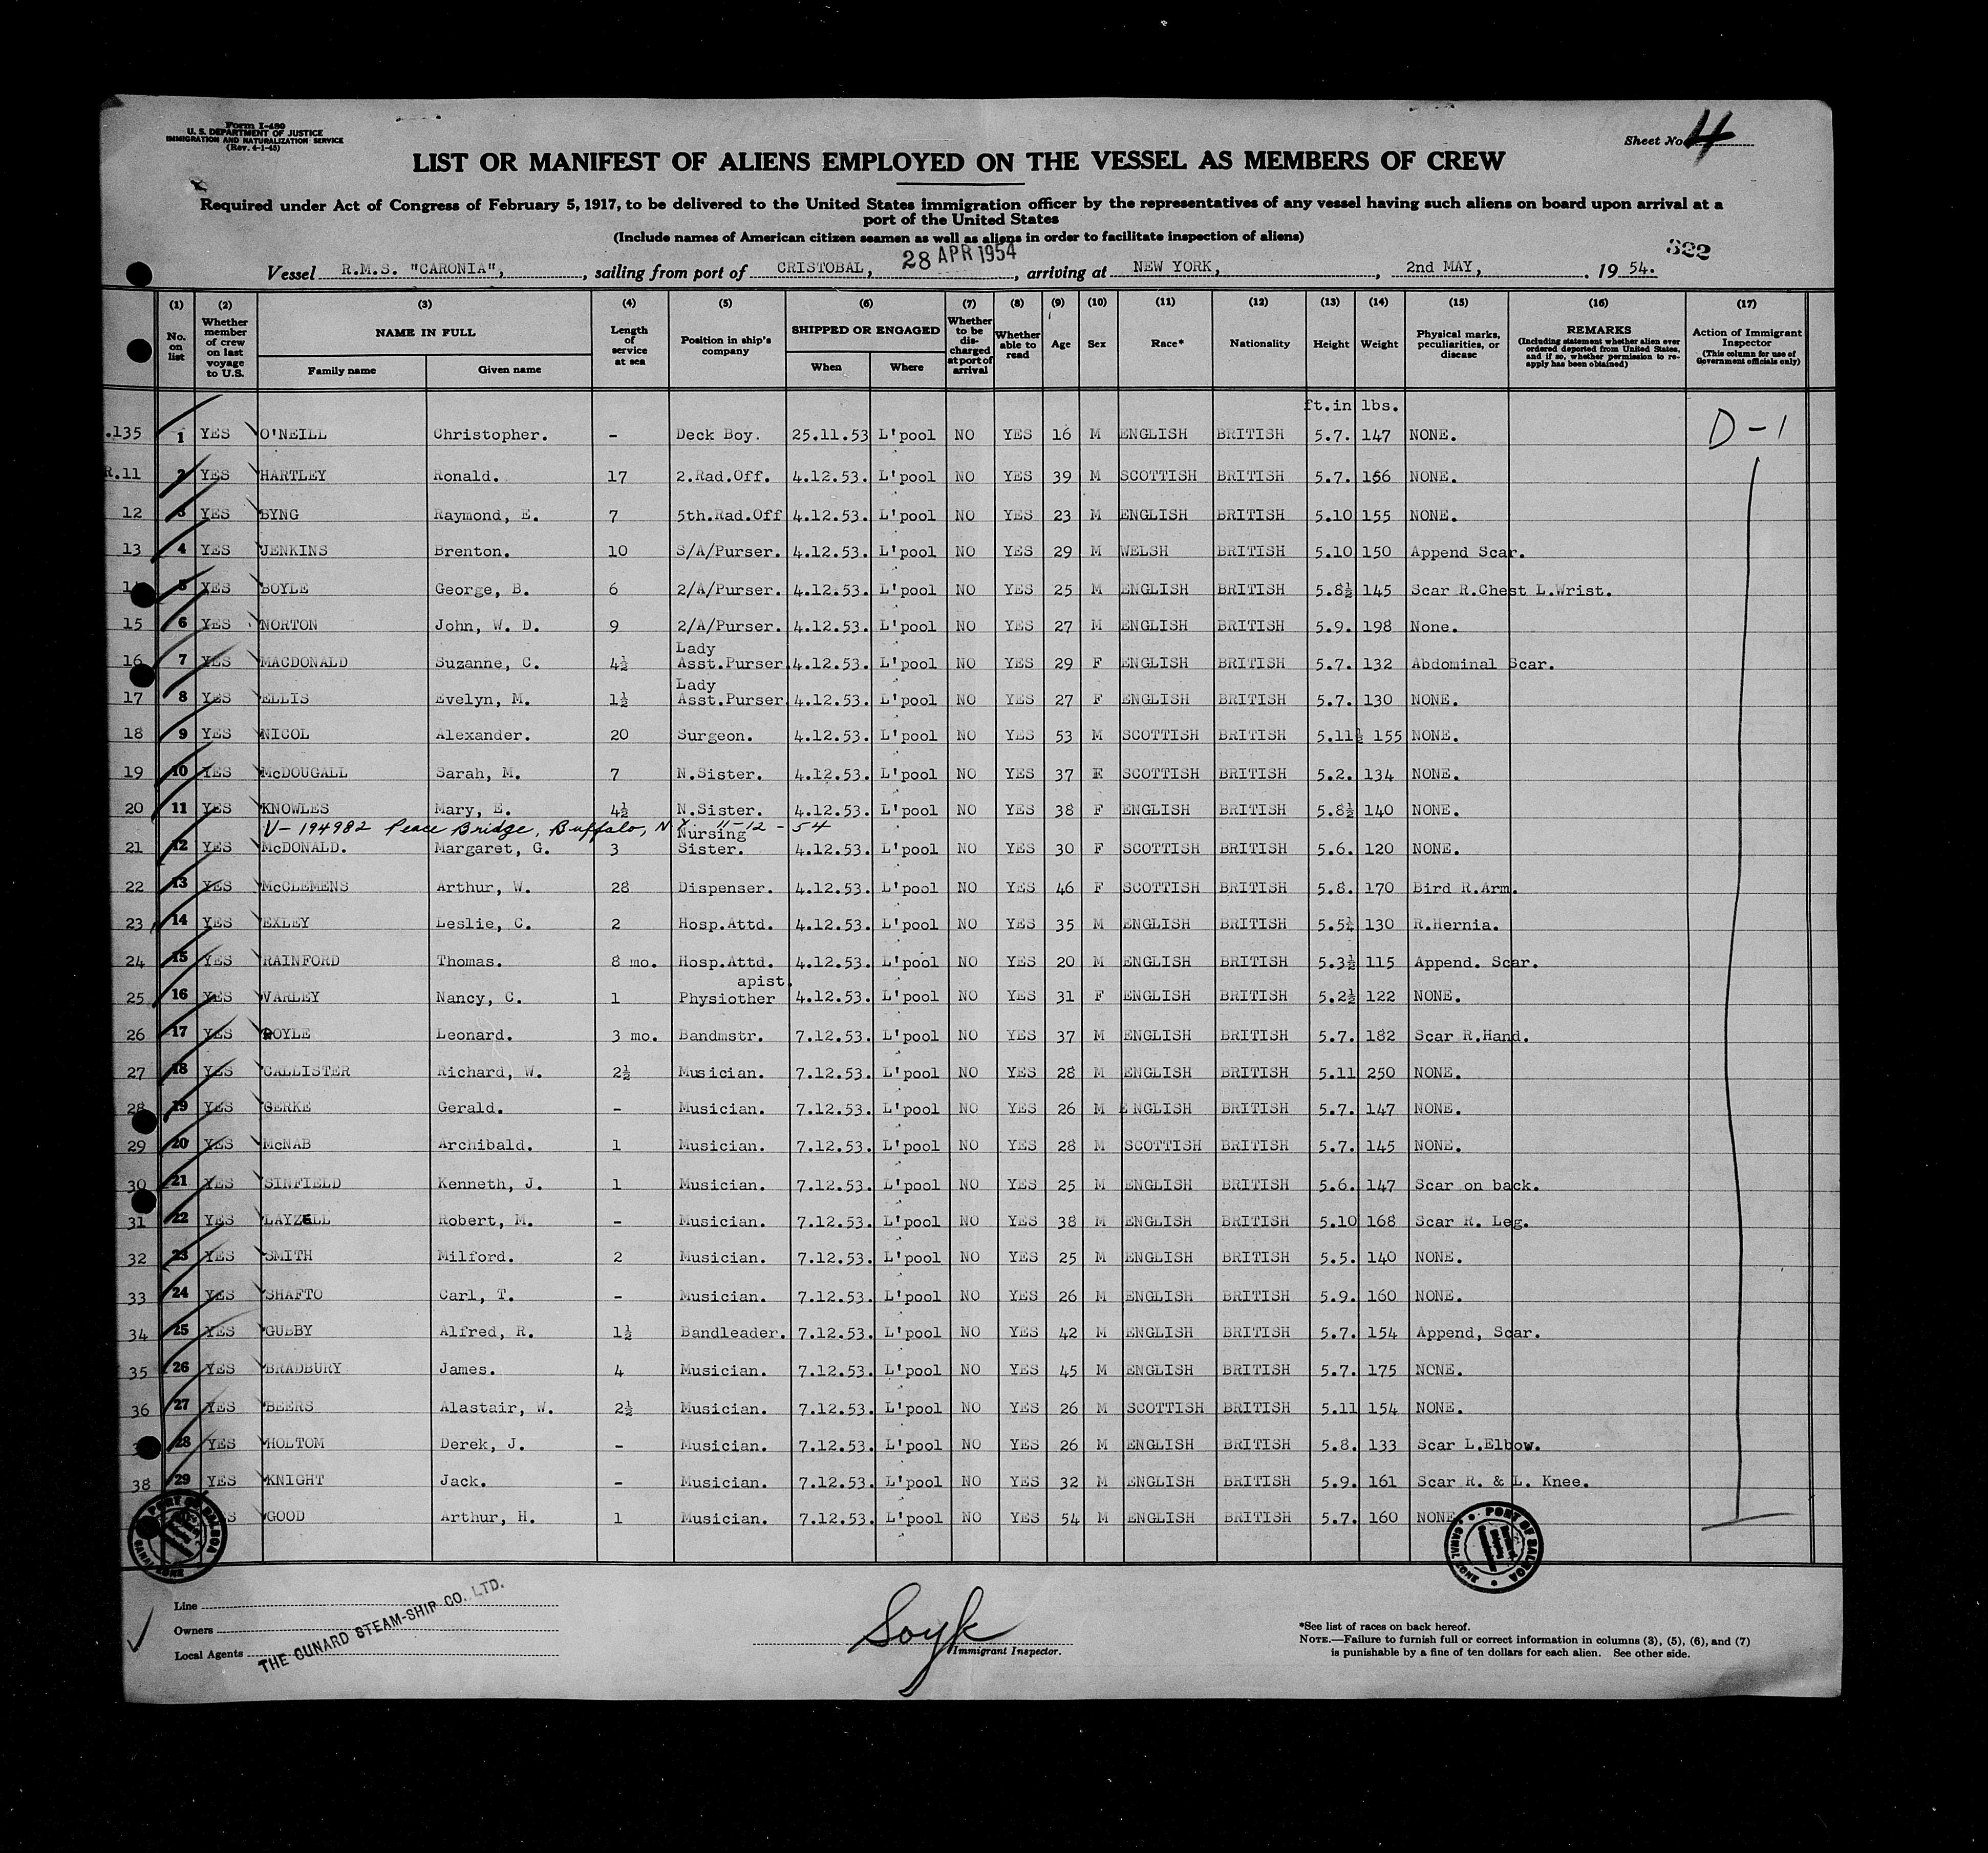 Form I-480
U. S. DEPARTMENT OF JUSTICE
IMMIGRATION AND NATURALIZATION SERVICE
(Rev. 4-1-45)
Sheet No. 4
LIST OR MANIFEST OF ALIENS EMPLOYED ON THE VESSEL AS MEMBERS OF CREW
Required under Act of Congress of February 5, 1917, to be delivered to the United States immigration officer by the representatives of any vessel having such aliens on board upon arrival at a
port of the United States
(Include names of American citizen seamen as well as aliens in order to facilitate inspection of aliens)
322
Vessel R.M.S. "CARONIA", sailing from port of CRISTOBAL, 28 APR 1954, arriving at NEW YORK, 2nd MAY, 1954.
(1) No. on list (2) Whether member of crew on last voyage to U.S. (3) NAME IN FULL Family name Given name (4) Length of service at sea (5) Position in ship's company (6) SHIPPED OR ENGAGED When Where (7) Whether to be discharged at port of arrival (8) Whether able to read (9) Age (10) Sex (11) Race* (12) Nationality (13) Height (14) Weight (15) Physical marks, peculiarities, or disease (16) REMARKS (Including statement whether alien ever ordered deported from United States, and if so, whether permission to reapply has been obtained) (17) Action of Immigrant Inspector (This column for use of Government officials only)
ft.in lbs.
.135 1 YES O'NEILL Christopher. - Deck Boy. 25.11.53 L'pool NO YES 16 M ENGLISH BRITISH 5.7. 147 NONE. D-1
R.11 2 YES HARTLEY Ronald. 17 2.Rad.Off. 4.12.53. L'pool NO YES 39 M SCOTTISH BRITISH 5.7. 156 NONE.
12 3 YES BYNG Raymond, E. 7 5th.Rad.Off 4.12.53. L'pool NO YES 23 M ENGLISH BRITISH 5.10 155 NONE.
13 4 YES JENKINS Brenton. 10 S/A/Purser. 4.12.53. L'pool NO YES 29 M WELSH BRITISH 5.10 150 Append Scar.
14 5 YES BOYLE George, B. 6 2/A/Purser. 4.12.53. L'pool NO YES 25 M ENGLISH BRITISH 5.8½ 145 Scar R.Chest L.Wrist.
15 6 YES NORTON John, W. D. 9 2/A/Purser. 4.12.53. L'pool NO YES 27 M ENGLISH BRITISH 5.9. 198 None.
16 7 YES MACDONALD Suzanne, C. 4½ Lady Asst.Purser. 4.12.53. L'pool NO YES 29 F ENGLISH BRITISH 5.7. 132 Abdominal Scar.
17 8 YES ELLIS Evelyn, M. 1½ Lady Asst.Purser. 4.12.53. L'pool NO YES 27 F ENGLISH BRITISH 5.7. 130 NONE.
18 9 YES NICOL Alexander. 20 Surgeon. 4.12.53. L'pool NO YES 53 M SCOTTISH BRITISH 5.11½ 155 NONE.
19 10 YES McDOUGALL Sarah, M. 7 N.Sister. 4.12.53. L'pool NO YES 37 F SCOTTISH BRITISH 5.2. 134 NONE.
20 11 YES KNOWLES Mary, E. 4½ N.Sister. 4.12.53. L'pool NO YES 38 F ENGLISH BRITISH 5.8½ 140 NONE.
V-194982 Peace Bridge, Buffalo, N Y 11-12-54
21 12 YES McDONALD. Margaret, G. 3 Nursing Sister. 4.12.53. L'pool NO YES 30 F SCOTTISH BRITISH 5.6. 120 NONE.
22 13 YES McCLEMENS Arthur, W. 28 Dispenser. 4.12.53. L'pool NO YES 46 F SCOTTISH BRITISH 5.8. 170 Bird R.Arm.
23 14 YES EXLEY Leslie, C. 2 Hosp.Attd. 4.12.53. L'pool NO YES 35 M ENGLISH BRITISH 5.5½ 130 R.Hernia.
24 15 YES RAINFORD Thomas. 8 mo. Hosp.Attd. 4.12.53. L'pool NO YES 20 M ENGLISH BRITISH 5.3½ 115 Append. Scar.
25 16 YES VARLEY Nancy, C. 1 Physiotherapist. 4.12.53. L'pool NO YES 31 F ENGLISH BRITISH 5.2½ 122 NONE.
26 17 YES ROYLE Leonard. 3 mo. Bandmstr. 7.12.53. L'pool NO YES 37 M ENGLISH BRITISH 5.7. 182 Scar R.Hand.
27 18 YES CALLISTER Richard, W. 2½ Musician. 7.12.53. L'pool NO YES 28 M ENGLISH BRITISH 5.11 250 NONE.
28 19 YES GERKE Gerald. - Musician. 7.12.53. L'pool NO YES 26 M ENGLISH BRITISH 5.7. 147 NONE.
29 20 YES McNAB Archibald. 1 Musician. 7.12.53. L'pool NO YES 28 M SCOTTISH BRITISH 5.7. 145 NONE.
30 21 YES SINFIELD Kenneth, J. 1 Musician. 7.12.53. L'pool NO YES 25 M ENGLISH BRITISH 5.6. 147 Scar on back.
31 22 YES LAYZELL Robert, M. - Musician. 7.12.53. L'pool NO YES 38 M ENGLISH BRITISH 5.10 168 Scar R. Leg.
32 23 YES SMITH Milford. 2 Musician. 7.12.53. L'pool NO YES 25 M ENGLISH BRITISH 5.5. 140 NONE.
33 24 YES SHAFTO Carl, T. - Musician. 7.12.53. L'pool NO YES 26 M ENGLISH BRITISH 5.9. 160 NONE.
34 25 YES GUBBY Alfred, R. 1½ Bandleader. 7.12.53. L'pool NO YES 42 M ENGLISH BRITISH 5.7. 154 Append, Scar.
35 26 YES BRADBURY James. 4 Musician. 7.12.53. L'pool NO YES 45 M ENGLISH BRITISH 5.7. 175 NONE.
36 27 YES BEERS Alastair, W. 2½ Musician. 7.12.53. L'pool NO YES 26 M SCOTTISH BRITISH 5.11 154 NONE.
28 YES HOLTOM Derek, J. - Musician. 7.12.53. L'pool NO YES 26 M ENGLISH BRITISH 5.8. 133 Scar L.Elbow.
38 29 YES KNIGHT Jack. - Musician. 7.12.53. L'pool NO YES 32 M ENGLISH BRITISH 5.9. 161 Scar R. & L. Knee.
GOOD Arthur, H. 1 Musician. 7.12.53. L'pool NO YES 54 M ENGLISH BRITISH 5.7. 160 NONE
PORT OF BALBOA CANAL ZONE
PORT OF BALBOA CANAL ZONE
Line
Owners
Local Agents
THE CUNARD STEAM-SHIP CO. LTD.
Immigrant Inspector.
*See list of races on back hereof.
NOTE.—Failure to furnish full or correct information in columns (3), (5), (6), and (7)
is punishable by a fine of ten dollars for each alien. See other side.